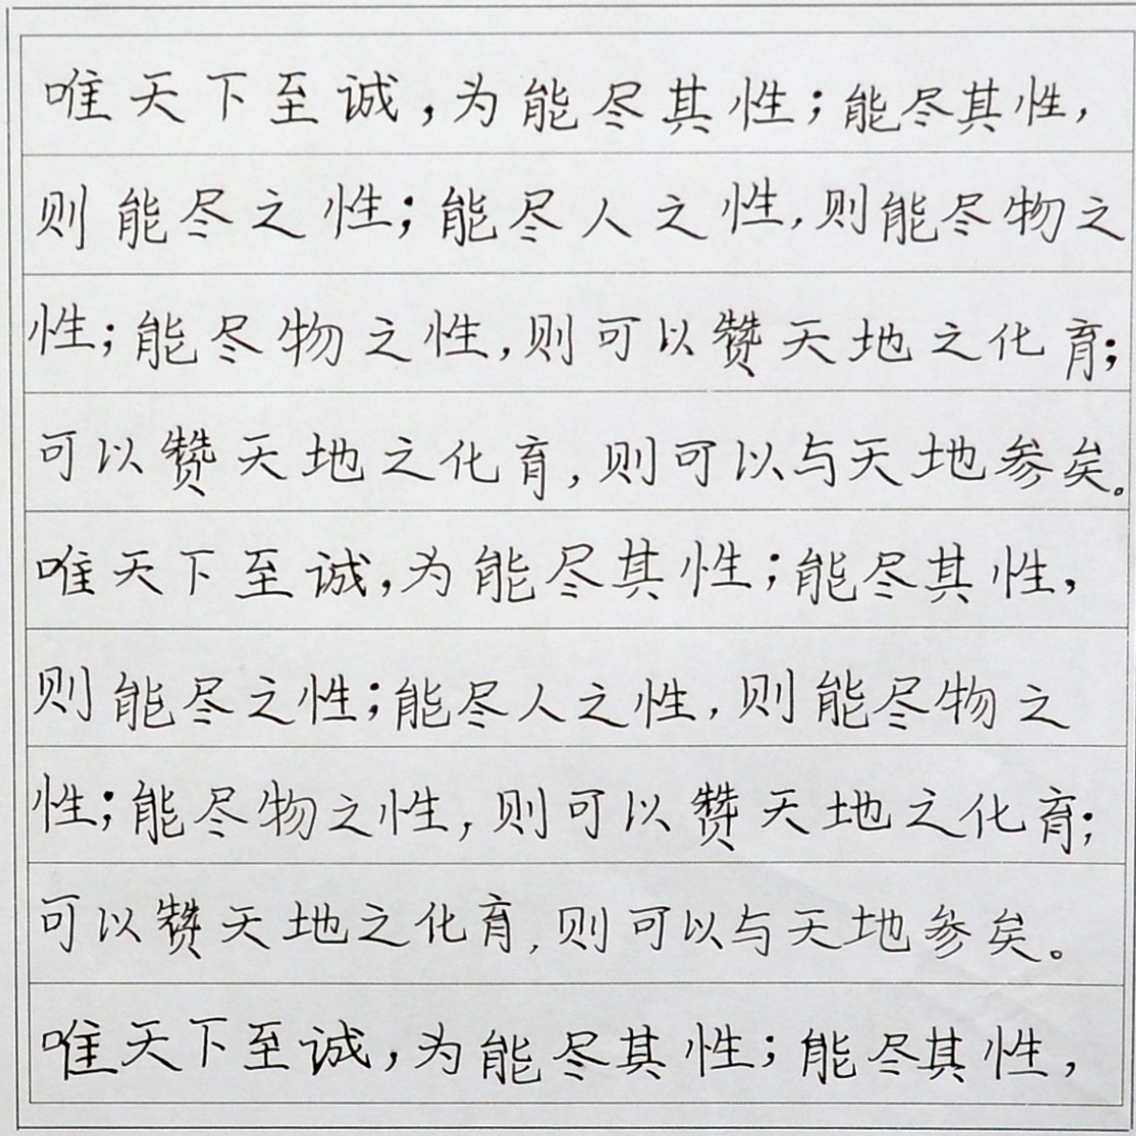 唯天下至诚，为能尽其性；能尽其性，
则能尽之性；能尽人之性，则能尽物之
性；能尽物之性，则可以赞天地之化育；
可以赞天地之化育，则可以与天地参矣。
唯天下至诚，为能尽其性；能尽其性，
则能尽之性；能尽人之性，则能尽物之
性；能尽物之性，则可以赞天地之化育；
可以赞天地之化育，则可以与天地参矣。
唯天下至诚，为能尽其性；能尽其性，